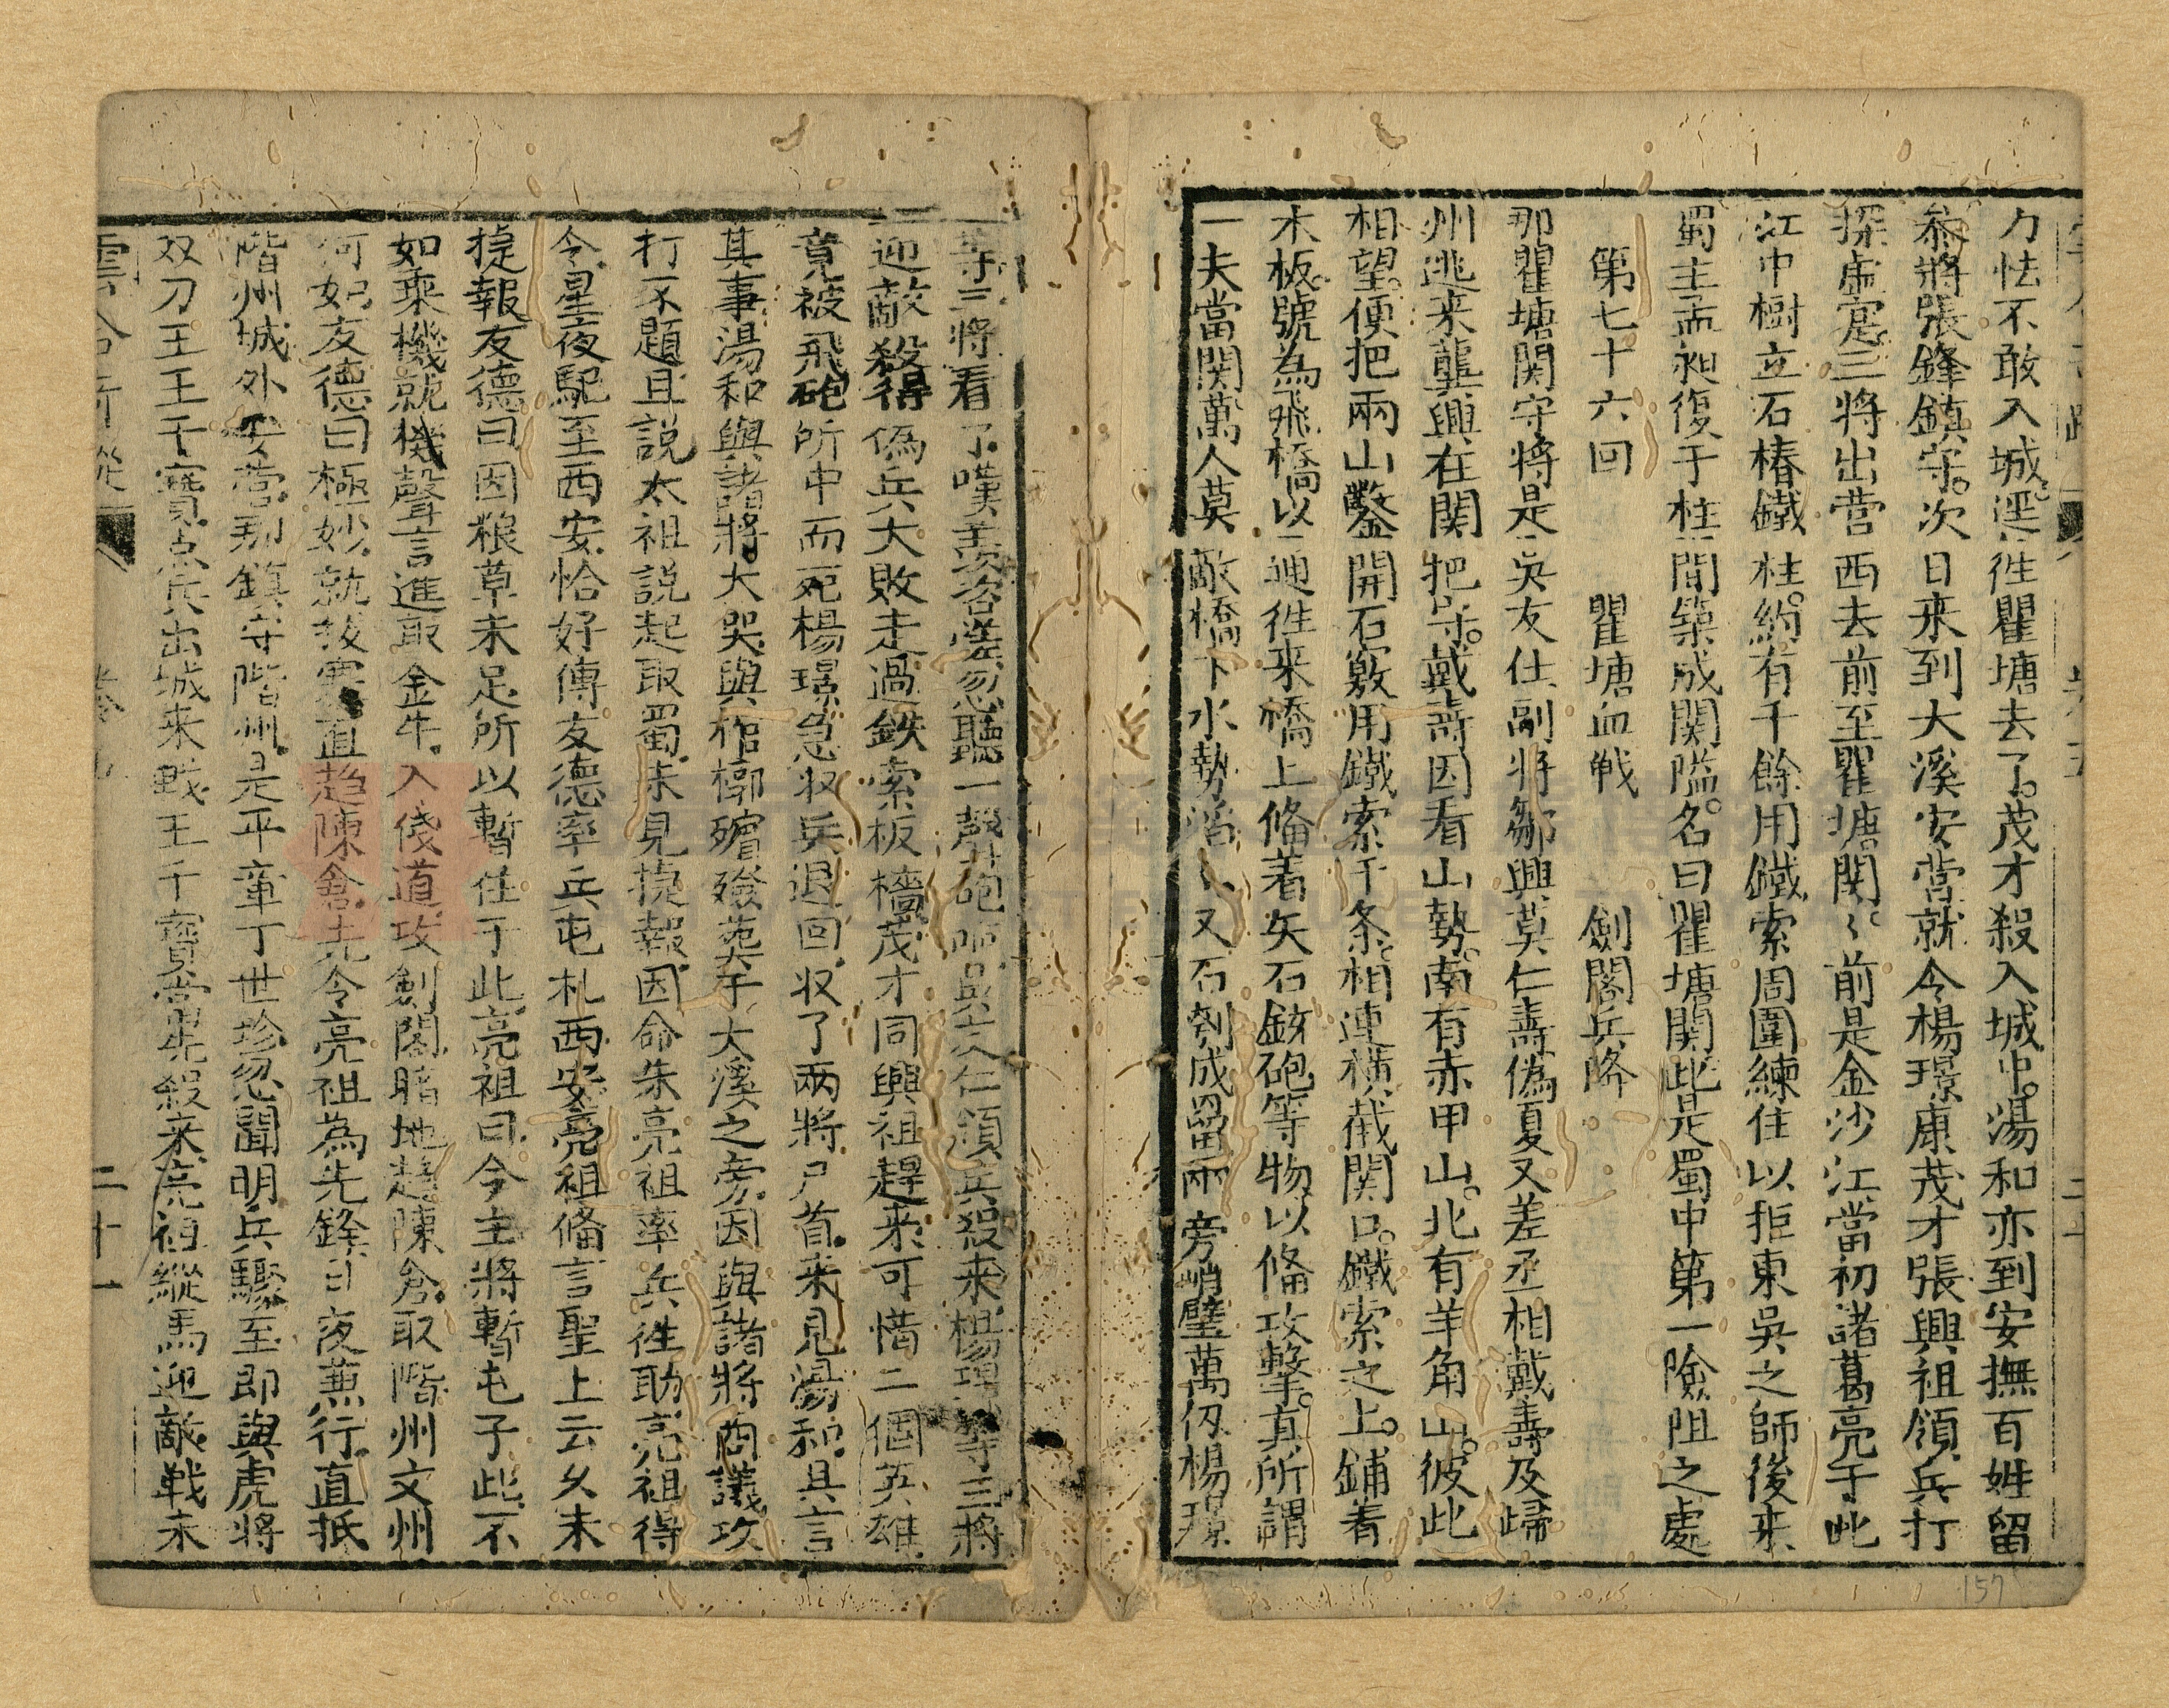 力怯不敢入城逕徃瞿塘去了茂才殺入城中湯和亦到安撫百姓留
叅將張鋒鎮守次日来到大溪安营就令楊璟康茂才張興祖領兵打
探虛寔三將出营西去前至瞿塘関〻前是金沙江當初諸葛亮于此
江中樹立石椿鐵柱約有千餘用鐵索周圍練住以拒東吳之師後来
蜀主孟昶復于柱間築成関隘名曰瞿塘関此是蜀中第一險阻之處
第七十六回　瞿塘血戦　劍閣兵降
那瞿塘関守將是吳友仕副将鄒興莫仁壽偽夏又差丞相戴壽及歸
州逃来龔興在関把守戴壽因看山勢南有赤甲山北有羊角山彼此
相望便把兩山鑿開石竅用鐵索千条相連横截関口鐵索之上鋪着
木板號為飛橋以通徃来橋上俻着矢石鉉砲等物以俻攻擊真所謂
一夫當関萬人莫敵橋下水勢滔〻又石剳成畱兩旁峭壁萬仭楊璟
等三將看了嘆羡咨嗟忽聽一聲砲响吳友仁領兵殺来楊璟等三將
迎敵殺得偽兵大敗走過鉄索板橋茂才同興祖趕来可惜二個英雄
竟被飛砲所中而死楊璟急收兵退回收了兩將尸首来見湯和具言
其事湯和與諸將大哭與棺槨殯殮塟于大溪之旁因與諸將商議攻
打不題且説太祖説起取蜀未見捷報因命朱亮祖率兵徃助亮祖得
令星夜馳至西安恰好傅友德率兵屯札西安亮祖俻言聖上云久未
捷報友德曰因粮草未足所以暫住于此亮祖曰今主將暫屯于此不
如乘機就機聲言進取金牛入俴道攻劍閣暗地趋陳倉取階州文州
何如友德曰極妙就拔寨直趋陳倉先令亮祖為先鋒日夜兼行直抵
階州城外安营那鎮守階州是平章丁世珍忽聞明兵驟至即與虎將
双刀王王千寶点兵出城来戦王千寶當先殺来亮祖縱馬迎敵戦未
二十一